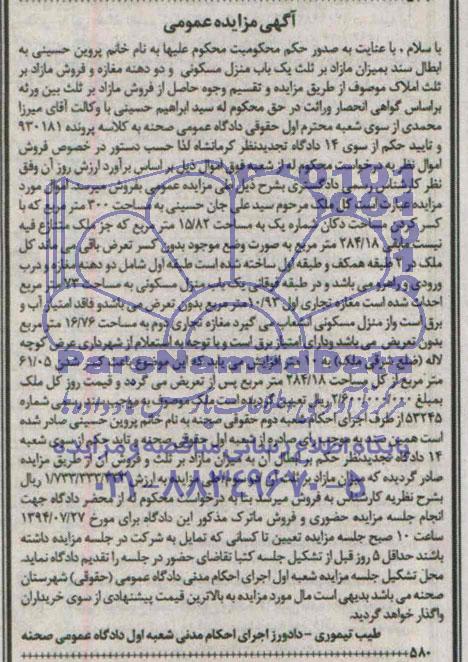 آگهی مزایده عمومی
با سلام ، با عنایت به صدور حکم محکومیت محکوم علیها به نام خانم پروین حسینی به
ابطال سند بمیزان مازاد بر ثلث یک باب منزل مسکونی و دو دهنه مغازه و فروش مازاد بر
ثلث املاک موصوف از طریق مزایده و تقسیم وجوه حاصل از فروش مازاد بر ثلث بین ورثه
براساس گواهی انحصار وراثت در حق محکوم له سید ابراهیم حسینی با وکالت آقای میرزا
محمدی از سوی شعبه محترم اول حقوقی دادگاه عمومی صحنه به کلاسه پرونده ۹۳۰۱۸۱
و تایید حکم از سوی ۱۴ دادگاه تجدیدنظر کرمانشاه لذا حسب دستور در خصوص فروش
اموال نظر به درخواست محکوم له از شعبه فوق اموال ذیل بر اساس برآورد ارزش روز آن وفق
نظر کارشناس رسمی دادگستری بشرح ذیل طی مزایده عمومی بفروش میرسد اموال مورد
مزایده عبارت است کل ملک مرحوم سید علی جان حسینی به مساحت ۳۰۰ متر مربع که با
کسر کردن مساحت دکان شماره یک به مساحت ۱۵/۸۲ متر مربع که جزء ملک متنازع فیه
نیست مابقی ۲۸۴/۱۸ متر مربع به صورت وضع موجود بدون کسر تعرض باقی می ماند کل
ملک در ۲ طبقه همکف و طبقه اول ساخته شده است طبقه اول شامل دو دهنه مغازه و درب
ورودی و راهرو می باشد و در طبقه فوقانی یک باب منزل مسکونی به مساحت ۷۳ متر مربع
احداث شده است مغازه تجاری اول ۱۰/۹۳ متر مربع بدون تعرض می باشد و فاقد امتیاز آب و
برق است واز منزل مسکونی انشعاب می گیرد مغازه تجاری دوم به مساحت ۱۶/۷۶ متر مربع
بدون تعریض می باشد ودارای امتیاز برق است و با توجه به استعلام از شهرداری عرض کوچه
لاله (ضلع شرقی ملک) به ۱۰ متر افزایش می یابد که این موضوع باعث کسر شدن ۶۱/۰۵
متر مربع از کل مساحت ۲۸۴/۱۸ متر مربع پس از تعریض می گردد و قیمت روز کل ملک
بمبلغ ۲/۶۰۰/۰۰۰/۰۰۰ ریال تعیین گردیده است ملک موصوف به موجب سند رسمی شماره
۵۳۲۴۵ از طرف اجرای احکام شعبه دوم حقوقی صحنه به نام خانم پروین حسینی صادر شده
است همین سند به موجب رای صادره از شعبه اول حقوقی صحنه و تاید حکم از سوی شعبه
۱۴ دادگاه تجدیدنظر حکم بر ابطال آن به میزان مازاد بر ثلث و فروش آن از طریق مزایده
صادر گردیده که میزان مازاد بر ثلث از طریق مزایده به ارزش ۱/۷۳۳/۳۳۳/۳۳۳ ریال
بشرح نظریه کارشناس به فروش میرسد بنا به درخواست محکوم له از محضر دادگاه جهت
انجام جلسه مزایده حضوری و فروش ماترک مذکور این دادگاه برای مورخ ۱۳۹۴/۰۷/۲۷
ساعت ۱۰ صبح جلسه مزایده تعیین تا کسانی که تمایل به شرکت در جلسه مزایده داشته
باشند حداقل ۵ روز قبل از تشکیل جلسه کتبا تقاضای حضور در جلسه را تقدیم دادگاه نماید
محل تشکیل جلسه مزایده شعبه اول اجرای احکام مدنی دادگاه عمومی (حقوقی) شهرستان
صحنه می باشد بدیهی است مال مورد مزایده به بالاترین قیمت پیشنهادی از سوی خریداران
واگذار خواهد گردید.
طیب تیموری – دادورز اجرای احکام مدنی شعبه اول دادگاه عمومی صحنه
۵۸۰
ParsNamadData
پایگاه اطلاع رسانی مناقصه و مزایده
۰۲۱-۸۸۳۴۹۶۷۰-۵